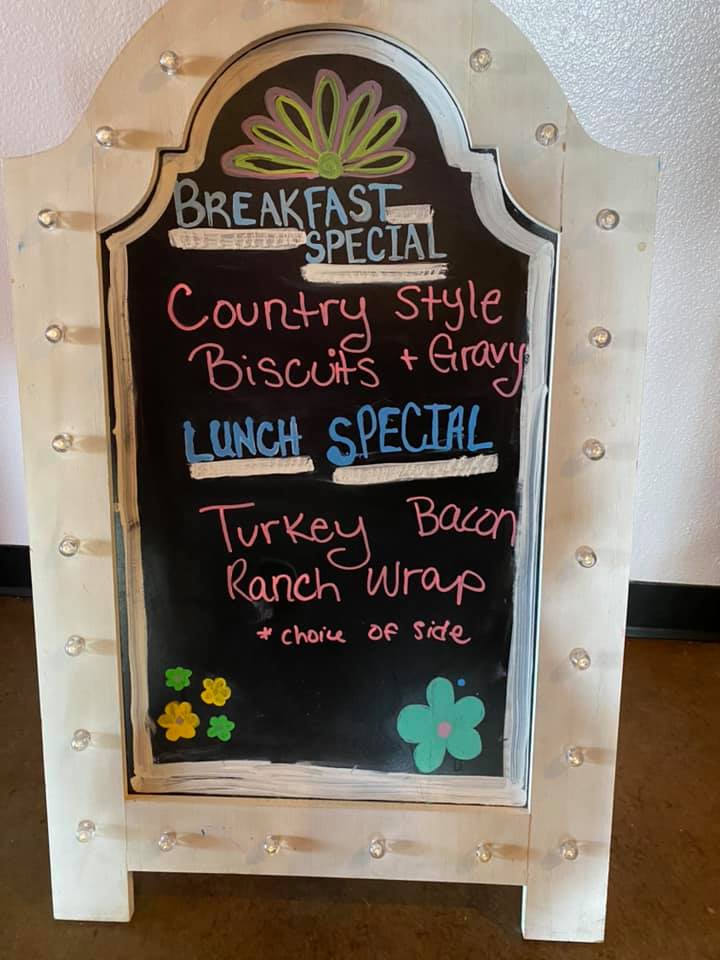 BREAKFAST
SPECIAL
Country Style
Biscuits + Gravy
LUNCH SPECIAL
Turkey Bacon
Ranch Wrap
* choice of side